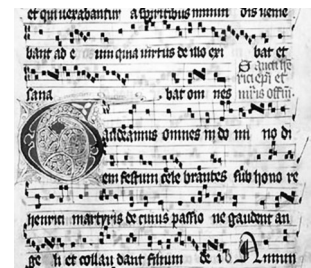 et qui vexabantur a spiritibus immun dis venie
bant ad e um quia virtus de illo exi bat et
sana bat om nes
S. ancti he
rici epi et
m̅ris offm̅.
Gaudeamus omnes in do mi no di
em festum cele brantes sub hono re
henrici martyris de cuius passio ne gaudent an
ge li et collau dant filium de i Annum